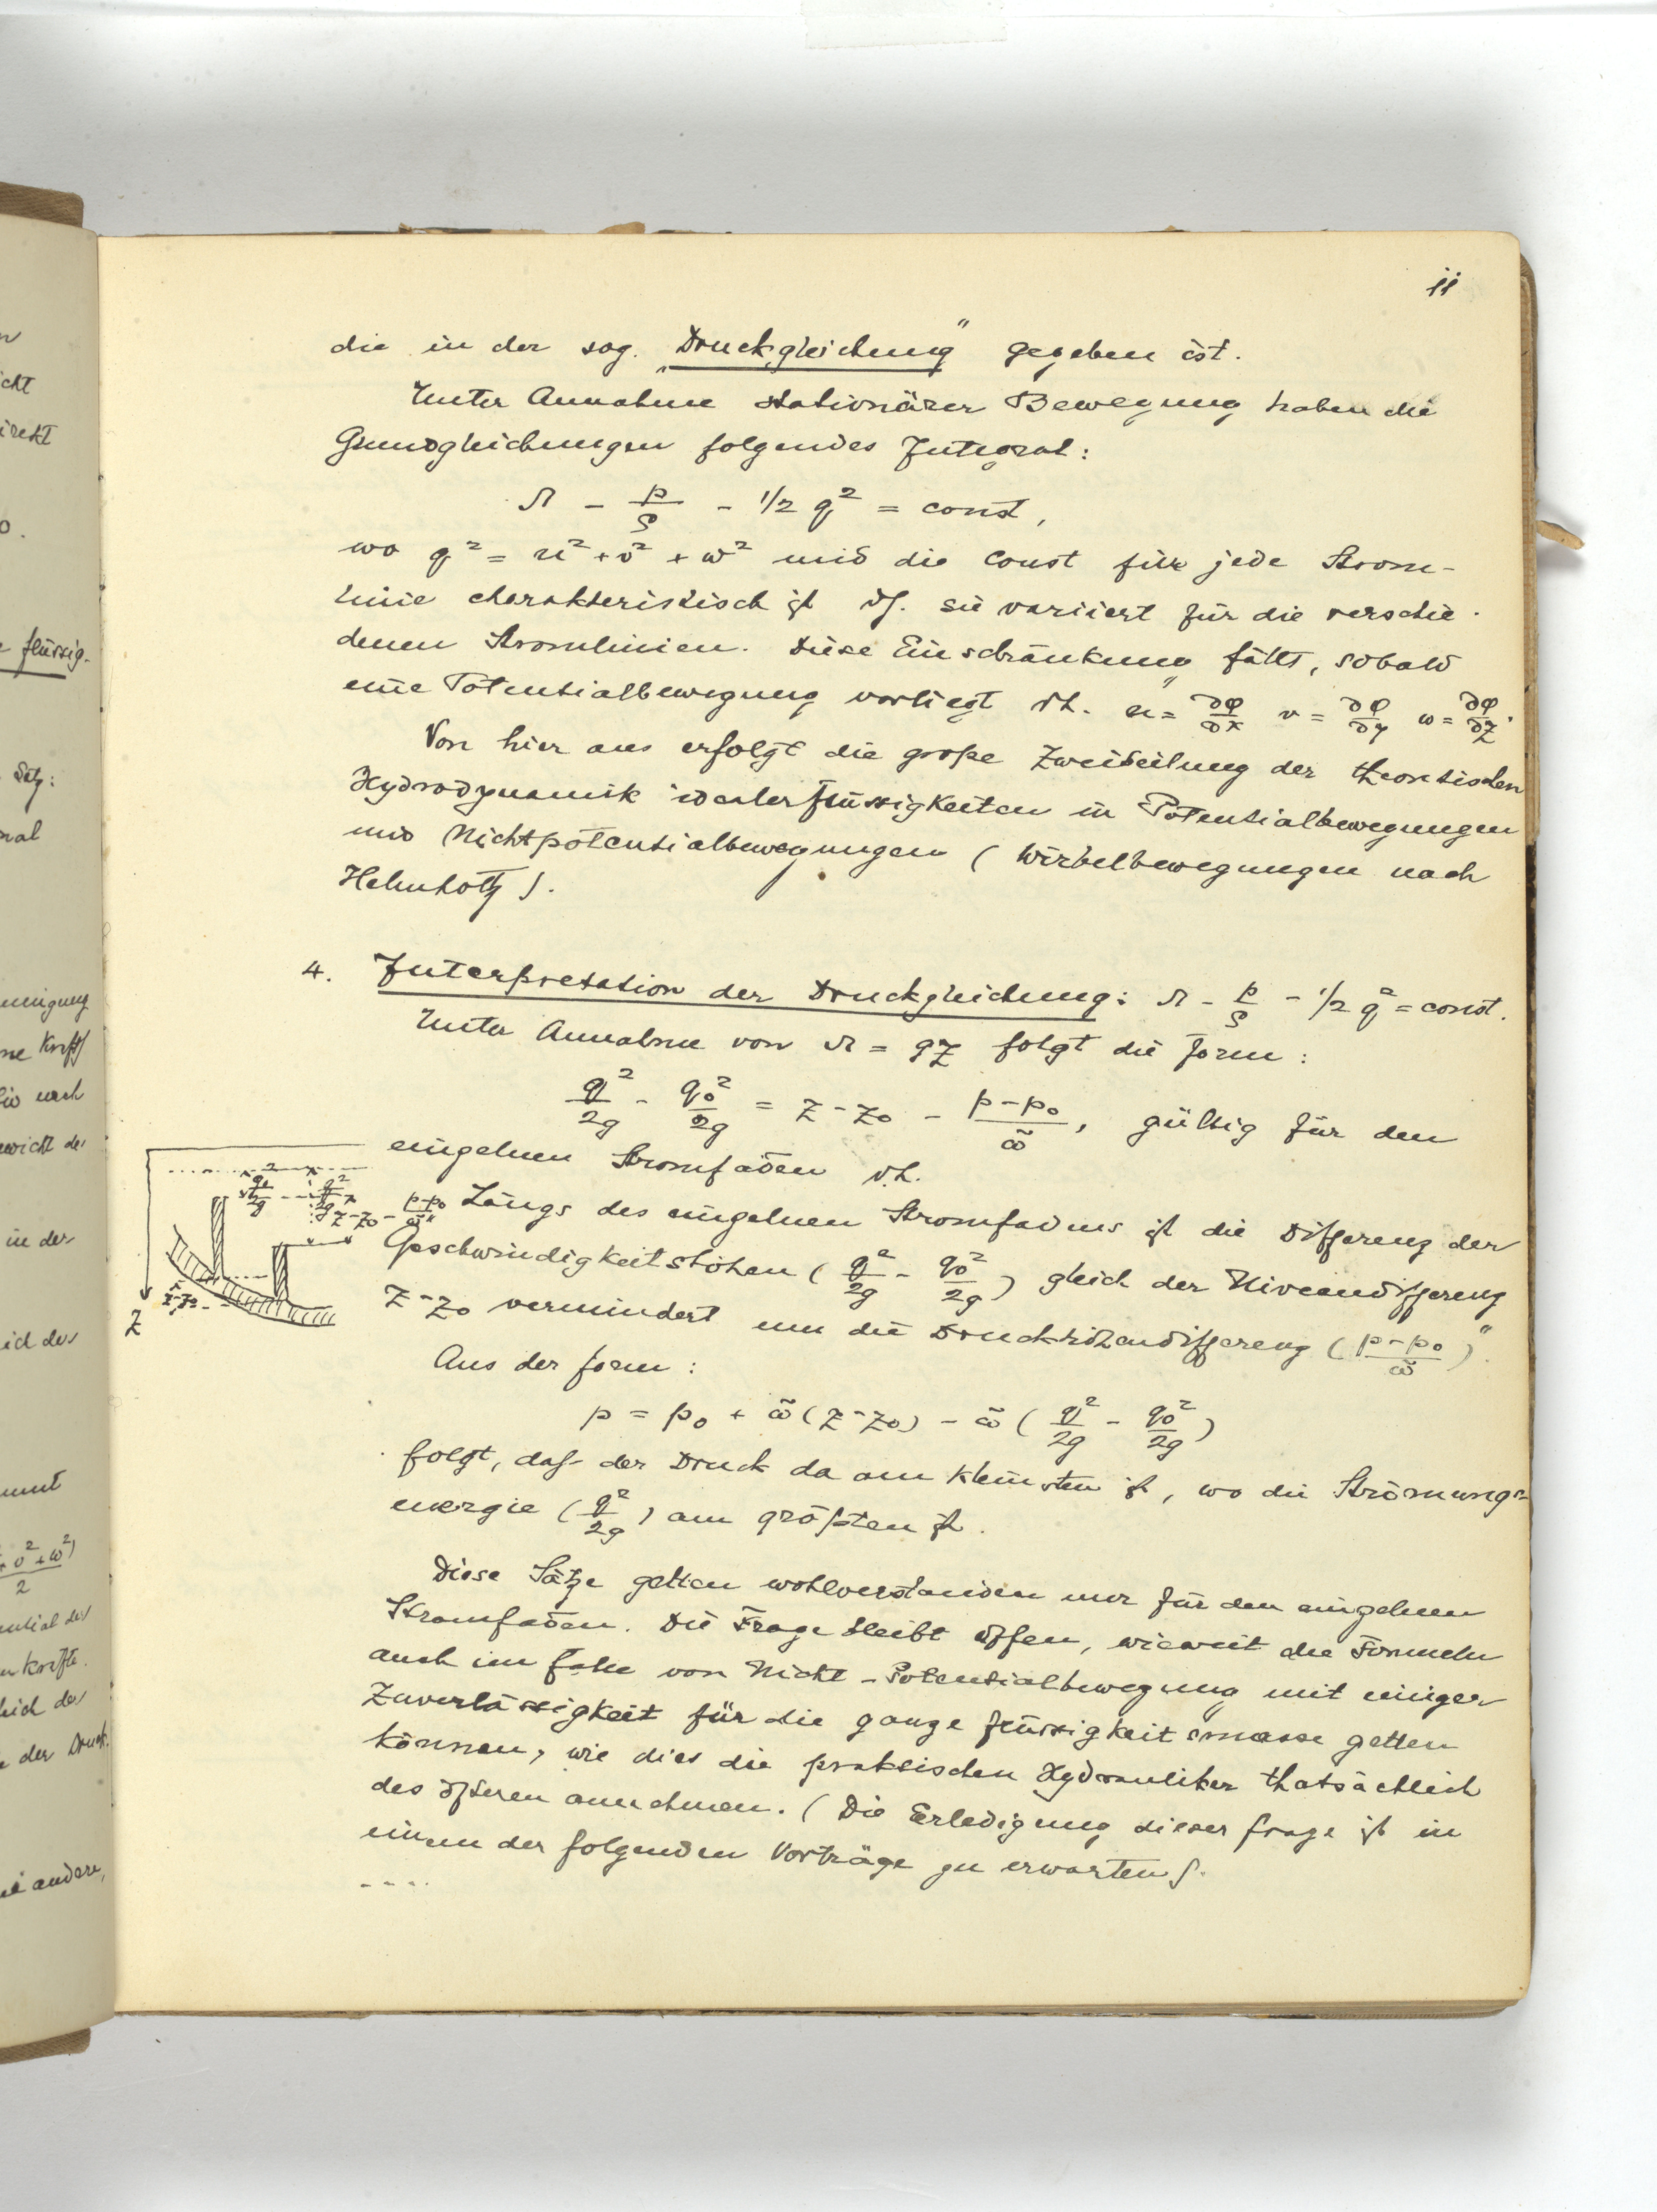 11
die in der sog. „Druckgleichung" gegeben ist.
Unter Annahme stationärer Bewegung haben die
Grundgleichungen folgendes Integral:
Ω - p/ρ - 1/2 q² = const,
wo q² = u² + v² + w² und die Const für jede Strom-
linie charakteristisch ist df. sie variiert für die verschie-
denen Stromlinien. Diese Einschränkung fällt, sobald
eine Potentialbewegung vorliegt d.h. u = ∂φ/∂x v = ∂φ/∂y w = ∂φ/∂z.
Von hier aus erfolgt die große Zweiteilung der theoretischen
Hydrodynamik idealer Flüssigkeiten in Potentialbewegungen
und Nichtpotentialbewegungen (Wirbelbewegungen nach
Helmholtz).
4. Interpretation der Druckgleichung: Ω - p/ρ - 1/2 q² = const.
Unter Annahme von Ω = gz folgt die Form:
q²/2g - q₀²/2g = z - z₀ - (p-p₀)/ω̃, gültig für den
einzelnen Stromfaden d.h.
„Längs des einzelnen Stromfadens ist die Differenz der
Geschwindigkeitshöhen (q²/2g - q₀²/2g) gleich der Niveaudifferenz
z - z₀ vermindert um die Druckhöhendifferenz ((p-p₀)/ω̃)".
q₀²/2g
q²/2g
z-z₀ - (p-p₀)/ω̃
z-z₀
z
Aus der Form:
p = p₀ + ω̃(z-z₀) - ω̃(q²/2g - q₀²/2g)
folgt, daß der Druck da am kleinsten ist, wo die Strömungs-
energie (q²/2g) am größten ist.
Diese Sätze gelten wohlverstanden nur für den einzelnen
Stromfaden. Die Frage bleibt offen, wieweit die Formeln
auch im Falle von Nicht-Potentialbewegung mit einiger
Zuverlässigkeit für die ganze Flüssigkeitsmasse gelten
können, wie dies die praktischen Hydrauliker thatsächlich
des öfteren annehmen. (Die Erledigung dieser Frage ist in
einem der folgenden Vorträge zu erwarten).
....
icht
irekt
flüssig-
Satz:
nal
Kraft
nach
in der
v² + w²)
2
der Druck.
andere,